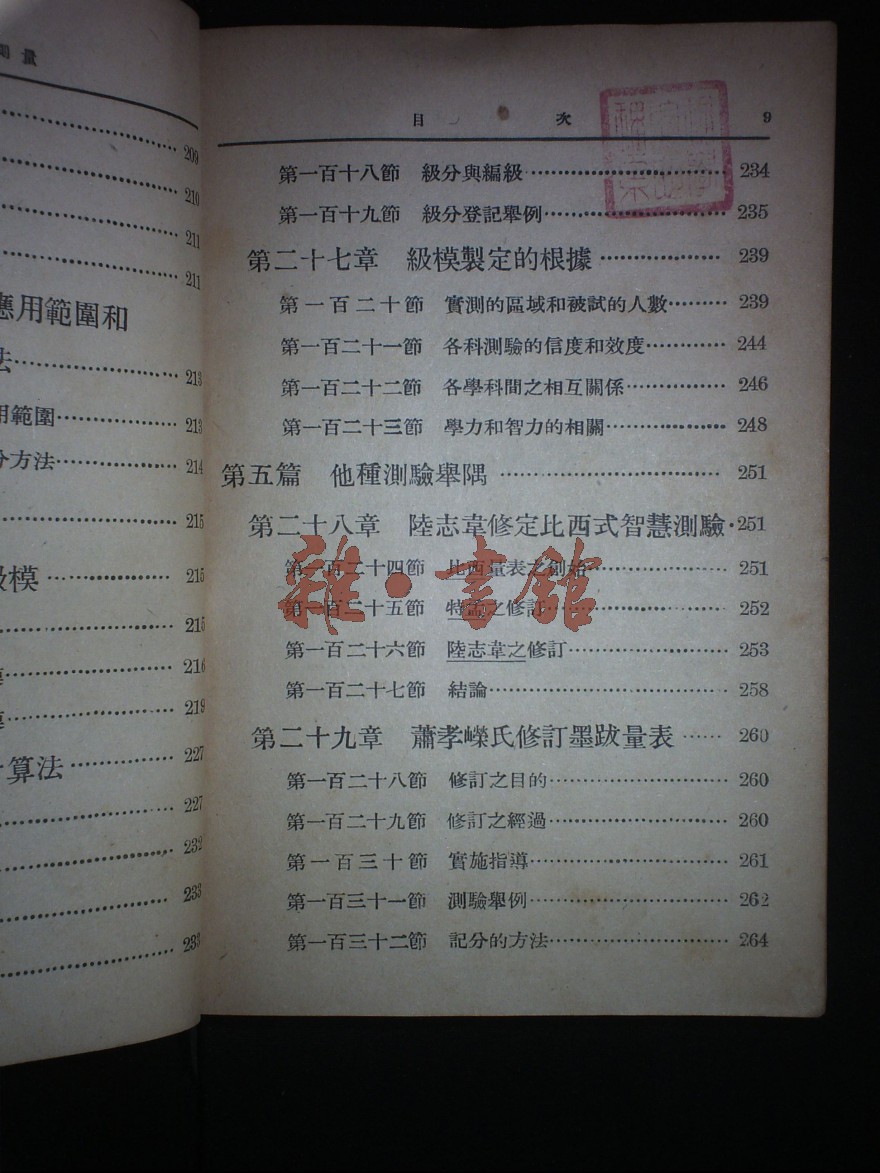 量
209
210
211
211
應用範圍和
法 213
用範圍 213
分方法 214
215
級模 215
215
216
219
算法 227
227
232
233
233
目 次 9
第一百十八節 級分與編級 234
第一百十九節 級分登記舉例 235
第二十七章 級模製定的根據 239
第一百二十節 實測的區域和被試的人數 239
第一百二十一節 各科測驗的信度和效度 244
第一百二十二節 各學科間之相互關係 246
第一百二十三節 學力和智力的相關 248
第五篇 他種測驗舉隅 251
第二十八章 陸志韋修定比西式智慧測驗 251
第一百二十四節 比西量表之創始 251
第一百二十五節 特孟之修訂 252
第一百二十六節 陸志韋之修訂 253
第一百二十七節 結論 258
第二十九章 蕭孝嶸氏修訂墨跋量表 260
第一百二十八節 修訂之目的 260
第一百二十九節 修訂之經過 260
第一百三十節 實施指導 261
第一百三十一節 測驗舉例 262
第一百三十二節 記分的方法 264
雜·書館